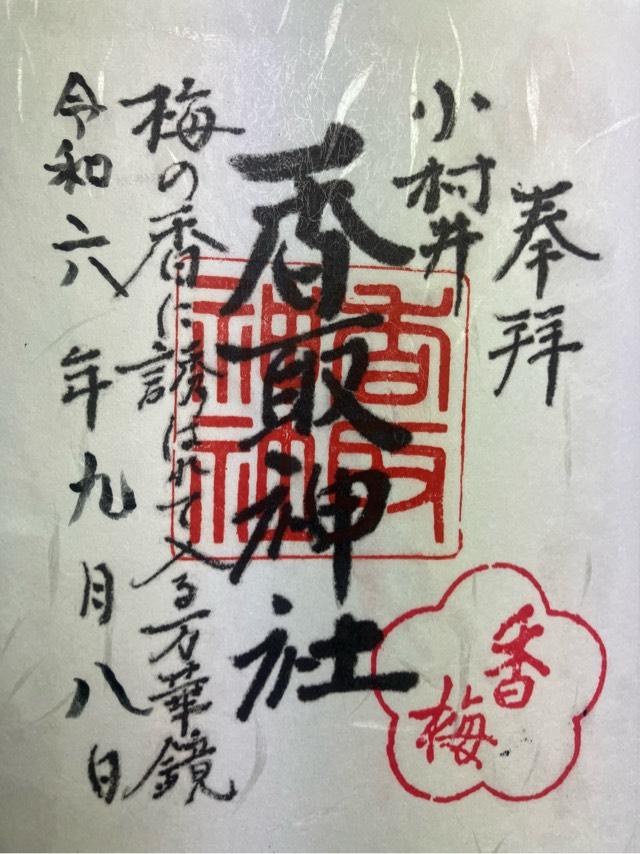 奉拝
小村井
香取神社
梅の香に誘はれて入る万華鏡
令和六年九月八日
香取神社
香梅